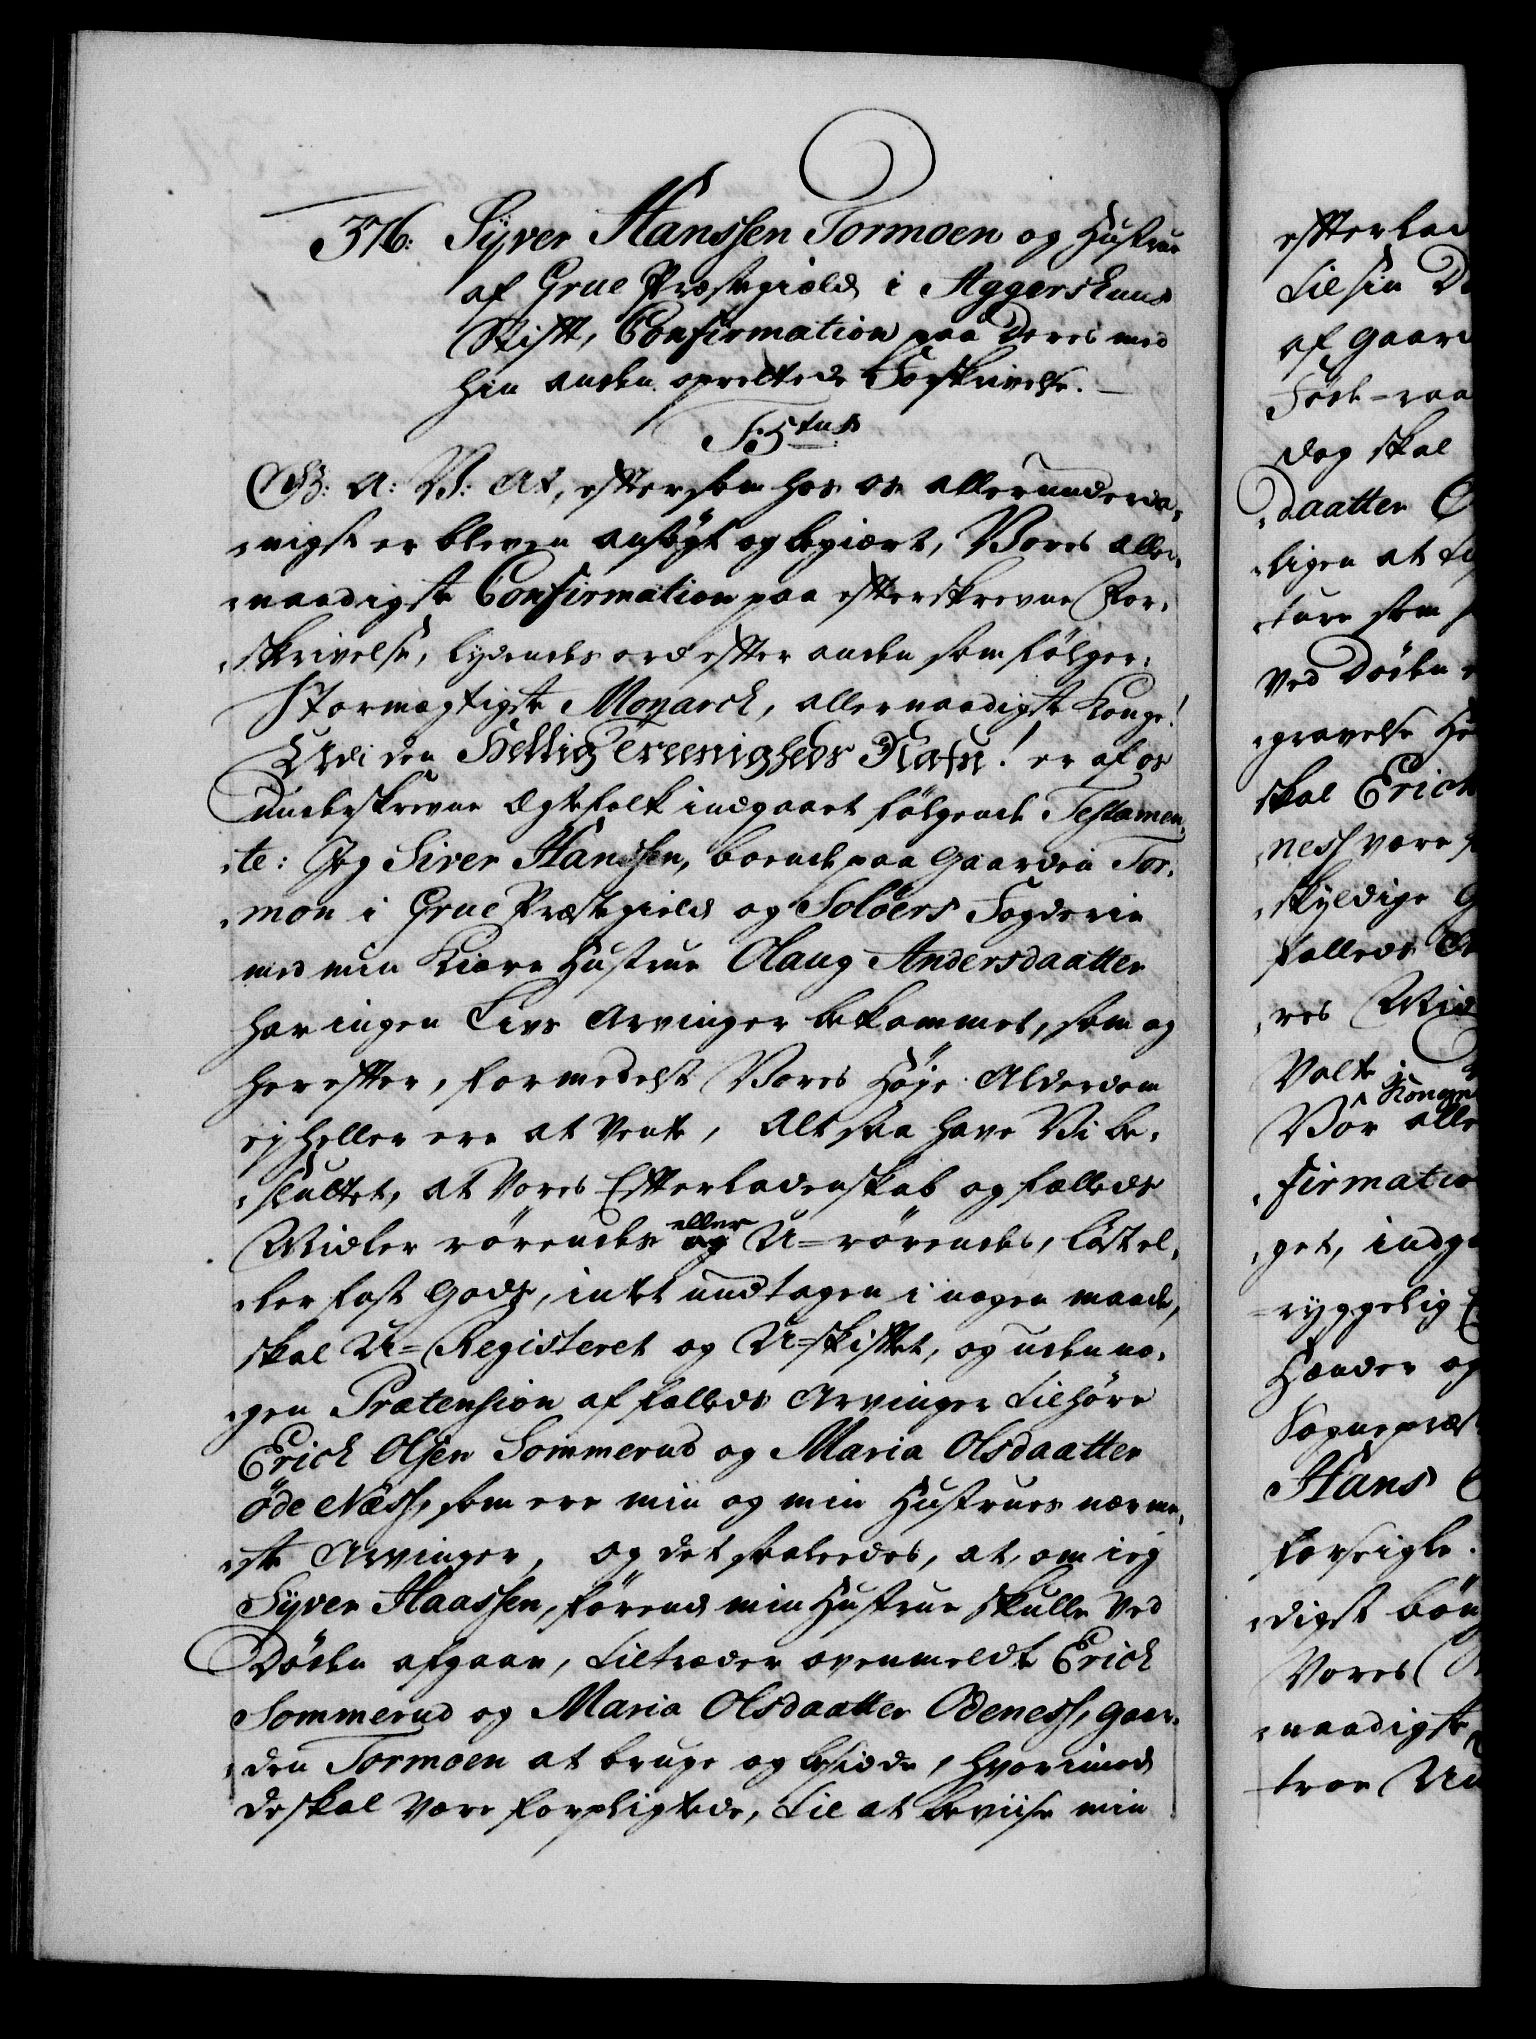 376. Syver Hanssen Tormoen og Hustrue
af Grue Præstegiæld i Aggershuus
Stift, Confirmation paa deres med
hin anden oprettede Forskrivelse.
G: A: V: At, eftersom hos os allerunderda-
nigst er bleven ansøgt og begiært, Vores aller-
naadigste Confirmation paa efterskrevne For-
skrivelse, lydendes ord efter anden som følger:
Stormægtigste Monarck, allernaadigste Konge!
Udi den Hellig Treenigheds Nafn! er af os
underskrevne Ægtefolk indgaaet følgende Testamen-
te: Jeg Siver Hanssen, boende paa Gaarden Tor-
mon i Grue Præstegield og Soløers Fogderie
med min Kiære Hustrue Olaug Andersdaatter
har ingen Livs Arvinger bekommet, som og
herefter, formedelst Vores høje Alderdom
ej heller ere at vente, Altsaa have Vi be-
sluttet, at Vores Efterladenskab og fælleds
Midler rørendes og eller U-rørendes, Løst el-
ler fast Gods, intet undtagen i nogen maade,
skal U-Registeret og U-skiftet, og uden no-
gen Prætension af fælleds Arvinger tilhøre
Erich Olsen Sommerud og Maria Olsdaatter
Øde Næss, som ere min og min Hustrues nærme-
ste Arvinger, og det saaledes, at, om jeg
Syver Haassen, førend min Hustrue skulle ved
Døden afgaae, tiltræder ovenmeldte Erich
Sommerud og Maria Olsdaatter Ødeness, Gaar-
den Tormoen at bruge og besidde, hvorimod
de skal være forpligtede, til at beviise min
efterlad
til sin D
af Gaard
Føde-raa
dog skal
daatter
ligen at
ture som
ved Døden
gravelse
skal Erich
ness være
skyldige
fælleds
res Mid
Kongen
Vor alle
firmatio
get, indg
ryggelig
Hænder og
Sognepræs
Hans
forseigle
digst bøn
Vores
naadigste
troe